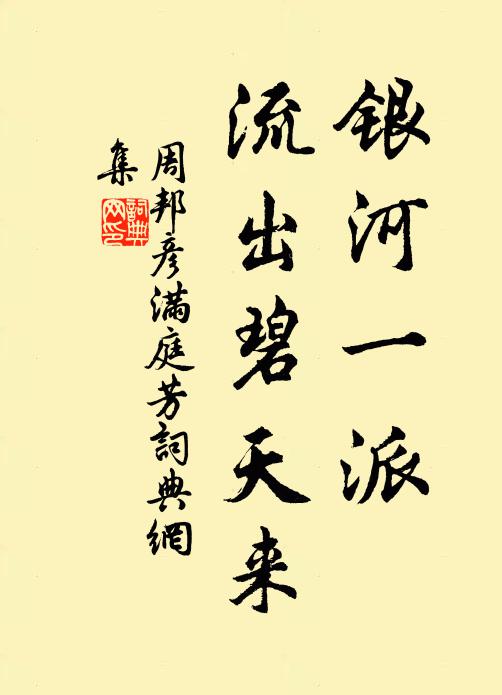 银河一派
流出碧天来
周邦彦满庭芳詞典網
集
詞典
网印